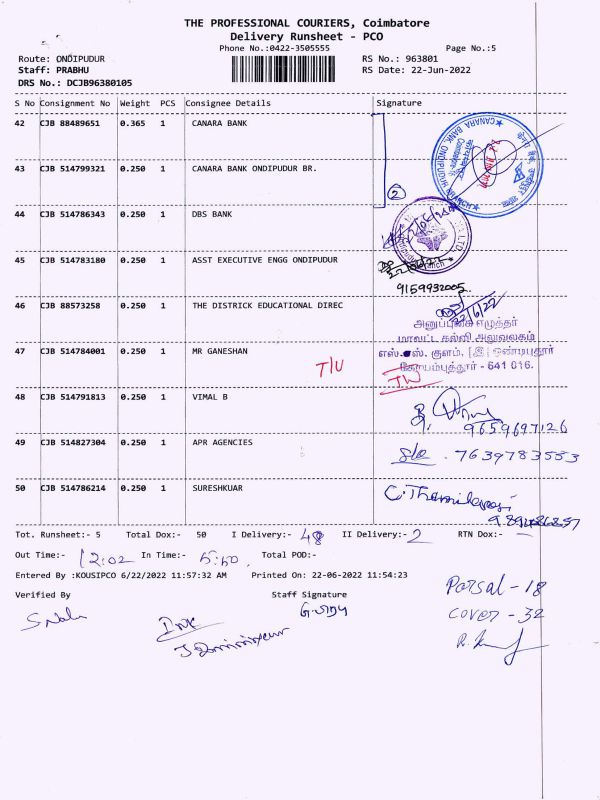 THE PROFESSIONAL COURIERS, Coimbatore
Delivery Runsheet - PCO
Phone No.:0422-3505555 Page No.:5
Route: ONDIPUDUR RS No.: 963801
Staff: PRABHU RS Date: 22-Jun-2022
DRS No.: DCJB96380105
S No Consignment No Weight PCS Consignee Details Signature
42 CJB 88489651 0.365 1 CANARA BANK
43 CJB 514799321 0.250 1 CANARA BANK ONDIPUDUR BR.
2
44 CJB 514786343 0.250 1 DBS BANK
45 CJB 514783180 0.250 1 ASST EXECUTIVE ENGG ONDIPUDUR
9159932005
46 CJB 88573258 0.250 1 THE DISTRICK EDUCATIONAL DIREC
22/6/22
மாவட்ட கல்வி அலுவலகம்
எஸ்.எஸ். குளம், [இ] ஒண்டிபுதூர்
கோயம்புத்தூர் - 641 016.
47 CJB 514784001 0.250 1 MR GANESHAN
T/U
48 CJB 514791813 0.250 1 VIMAL B
9659697126
49 CJB 514827304 0.250 1 APR AGENCIES
7639783553
50 CJB 514786214 0.250 1 SURESHKUAR
Tot. Runsheet:- 5 Total Dox:- 50 I Delivery:- 48 II Delivery:- 2 RTN Dox:- —
Out Time:- 12:02 In Time:- 5:50 Total POD:-
Entered By :KOUSIPCO 6/22/2022 11:57:32 AM Printed On: 22-06-2022 11:54:23
Verified By Staff Signature
Parsal - 18
Cover - 32